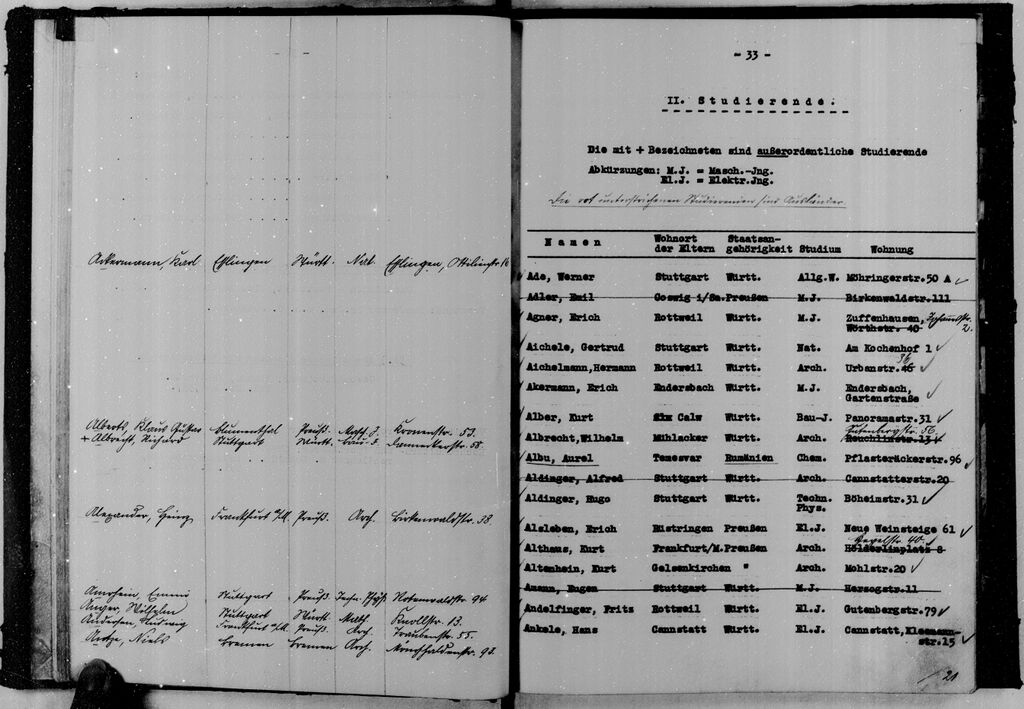 Ackermann, Karl Eßlingen Württ. Nat. Eßlingen, Ottilienstr. 16
Alberts, Klaus Gustav Blumenthal Preuß. Masch. J. Kronenstr. 53.
+ Albrecht, Richard Stuttgart Württ. Bau-J. Danneckerstr. 58.
Alexander, Heinz Frankfurt a/M. Preuß. Arch. Birkenwaldstr. 38.
Amrhein, Emmi Stuttgart Preuß. Techn. Phys. Rotenwaldstr. 94
Anger, Wilhelm Stuttgart Württ. Math. Knollstr. 13.
Andersen, Ludwig Frankfurt a/M. Preuß. Arch. Traubenstr. 55.
Niels Bremen Bremen Arch. Mönchhaldenstr. 93.
- 33 -
II. Studierende.
Die mit + Bezeichneten sind außerordentliche Studierende
Abkürzungen: M.J. = Masch.-Jng.
El.J. = Elektr.Jng.
Die rot unterstrichenen Studierenden sind Ausländer.
Namen Wohnort der Eltern Staatsan-gehörigkeit Studium Wohnung
Ade, Werner Stuttgart Württ. Allg.W. Möhringerstr.50 A
Adler, Emil Coswig i/Sa. Preußen M.J. Birkenwaldstr.111
Agner, Erich Rottweil Württ. M.J. Zuffenhausen,
Wörthstr. 40 2.
Aichele, Gertrud Stuttgart Württ. Nat. Am Kochenhof 1
36
Aichelmann,Hermann Rottweil Württ. Arch. Urbanstr.46
Akermann, Erich Endersbach Württ. M.J. Endersbach,
Gartenstraße
Alber, Kurt Calw Württ. Bau-J. Panoramastr.31
Gutenbergstr. 56.
Albrecht,Wilhelm Mühlacker Württ. Arch. Reuchlinstr.13
Albu, Aurel Temesvar Rumänien Chem. Pflasteräckerstr.96
Aldinger, Alfred Stuttgart Württ. Arch. Cannstatterstr.20
Aldinger, Hugo Stuttgart Württ. Techn. Böheimstr.31
Phys.
Alsleben, Erich Rüstringen Preußen El.J. Neue Weinsteige 61
Hegelstr. 40.
Althaus, Kurt Frankfurt/M. Preußen Arch. Hölderlinplatz 8
Altenhein, Kurt Gelsenkirchen " Arch. Mohlstr.20
Amann, Eugen Stuttgart Württ. M.J. Herzogstr.11
Andelfinger, Fritz Rottweil Württ. El.J. Gutenbergstr.79
Ankele, Hans Cannstatt Württ. El.J. Cannstatt, Kleemann-
str.15
21